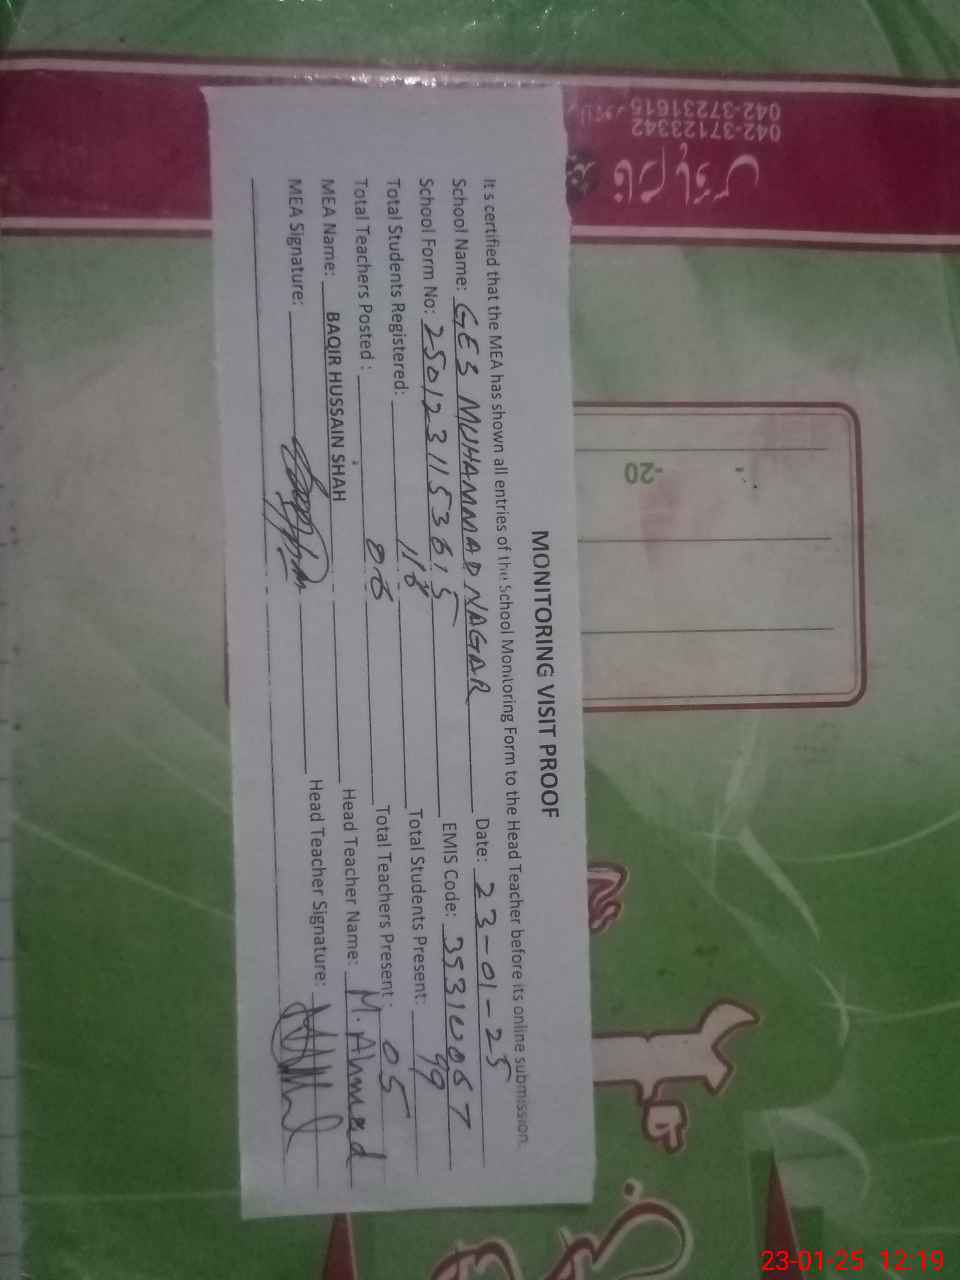 MONITORING VISIT PROOF
It s certified that the MEA has shown all entries of the School Monitoring Form to the Head Teacher before its online submission.
School Name: GES MUHAMMAD NAGAR Date: 23-01-25
School Form No: 2501231153615 EMIS Code:
Total Students Registered: 118 Total Students Present: 99
Total Teachers Posted : Total Teachers Present : 05
MEA Name: BAQIR HUSSAIN SHAH Head Teacher Name: M. Ahmad
MEA Signature: Head Teacher Signature:
042-37231615
042-37123342
-20
23-01-25 12:19